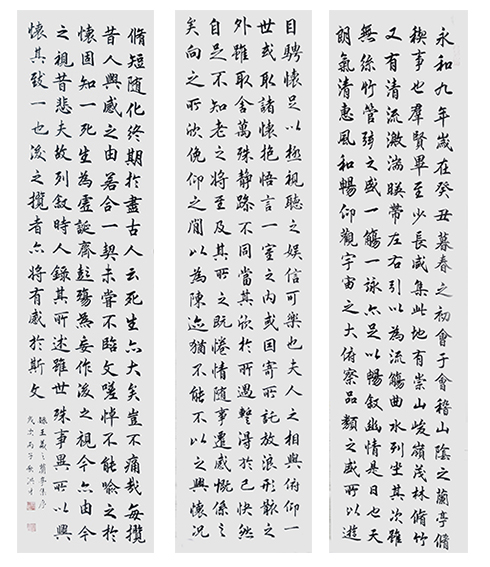 永和九年歲在癸丑暮春之初會于會稽山陰之蘭亭脩
稧事也羣賢畢至少長咸集此地有崇山峻嶺茂林脩竹
又有清流激湍映帶左右引以為流觴曲水列坐其次雖
無絲竹管弦之盛一觴一詠亦足以暢敘幽情是日也天
朗氣清惠風和暢仰觀宇宙之大俯察品類之盛所以遊
目騁懷足以極視聽之娛信可樂也夫人之相與俯仰一
世或取諸懷抱悟言一室之內或因寄所託放浪形骸之
外雖取舍萬殊靜躁不同當其欣於所遇暫得於己快然
自足不知老之將至及其所之既惓情隨事遷感慨係之
矣向之所欣俛仰之閒以為陳迹猶不能不以之興懷況
脩短隨化終期於盡古人云死生亦大矣豈不痛哉每攬
昔人興感之由若合一契未嘗不臨文嗟悼不能喻之於
懷固知一死生為虛誕齊彭殤為妄作後之視今亦由今
之視昔悲夫故列敘時人錄其所述雖世殊事異所以興
懷其致一也後之攬者亦將有感於斯文
王羲之蘭亭集序